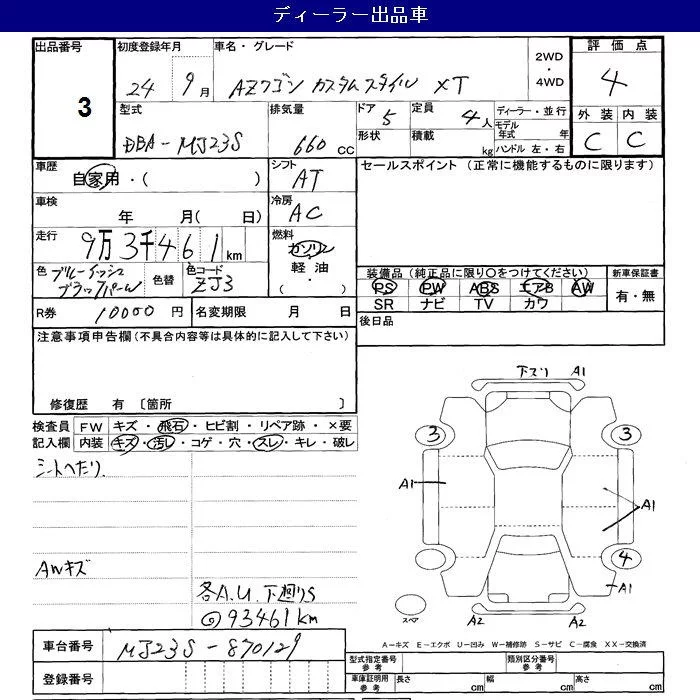 ディーラー出品車
出品番号 3
初度登録年月 24 9月
車名・グレード AZワゴン カスタムスタイル XT
2WD・4WD
評価点 4
外装 C 内装 C
型式 DBA-MJ23S
排気量 660cc
ドア 5 形状
定員 4人 積載 kg
ディーラー・並行
モデル年式 年
ハンドル 左・右
車歴 自家用・( )
シフト AT
セールスポイント (正常に機能するものに限ります)
車検 年 月( 日)
冷房 AC
走行 9万3千461km
燃料 ガソリン 軽油 ( ・ )
色 ブルーイッシュブラックパール 色替 色コード ZJ3
装備品(純正品に限り○をつけてください) 新車保証書
PS PW ABS エアB AW 有・無
SR ナビ TV カワ
R券 10000円 名変期限 月 日
後日品
注意事項申告欄(不具合内容等は具体的に記入して下さい)
修復歴 有 〔箇所 〕
検査員記入欄
FW キズ・飛石・ヒビ割・リペア跡・×要
内装 キズ・汚レ・コゲ・穴・スレ・キレ・破レ
シートヘたり
AWキズ
各A.U.下廻りS
93461km
下ズリ A1
3 3
A1 A1
4
A1
スペア A2 A2
A-キズ E-エクボ U-凹み W-補修跡 S-サビ C-腐食 XX-交換済
車台番号 MJ23S-870129
登録番号
型式指定番号参考 類別区分番号参考
車庫証明用参考 長さ cm 幅 cm 高さ cm